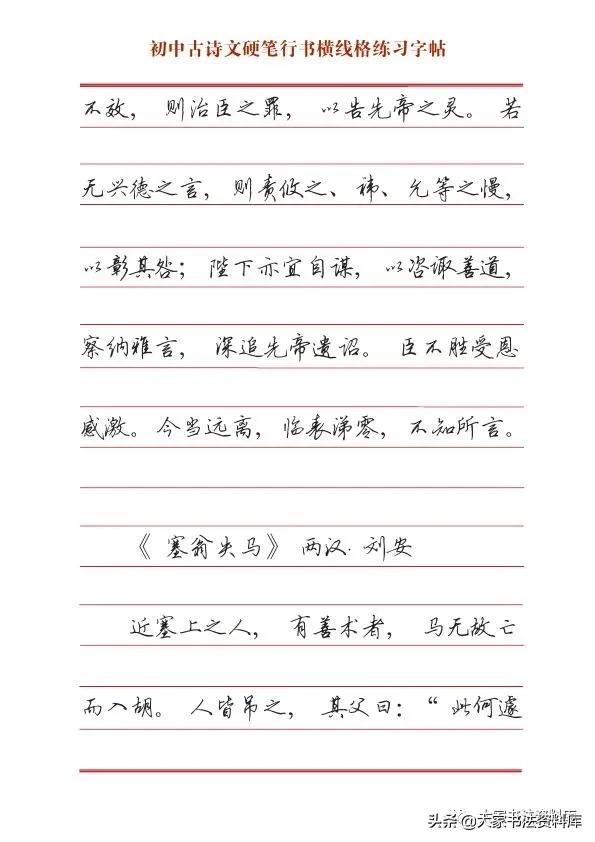 初中古诗文硬笔行书横线格练习字帖
不效，则治臣之罪，以告先帝之灵。若
无兴德之言，则责攸之、祎、允等之慢，
以彰其咎；陛下亦宜自谋，以咨诹善道，
察纳雅言，深追先帝遗诏。臣不胜受恩
感激。今当远离，临表涕零，不知所言。
《塞翁失马》两汉·刘安
近塞上之人，有善术者，马无故亡
而入胡。人皆吊之，其父曰：“此何遽
大家书法资料库
头条@大家书法资料库